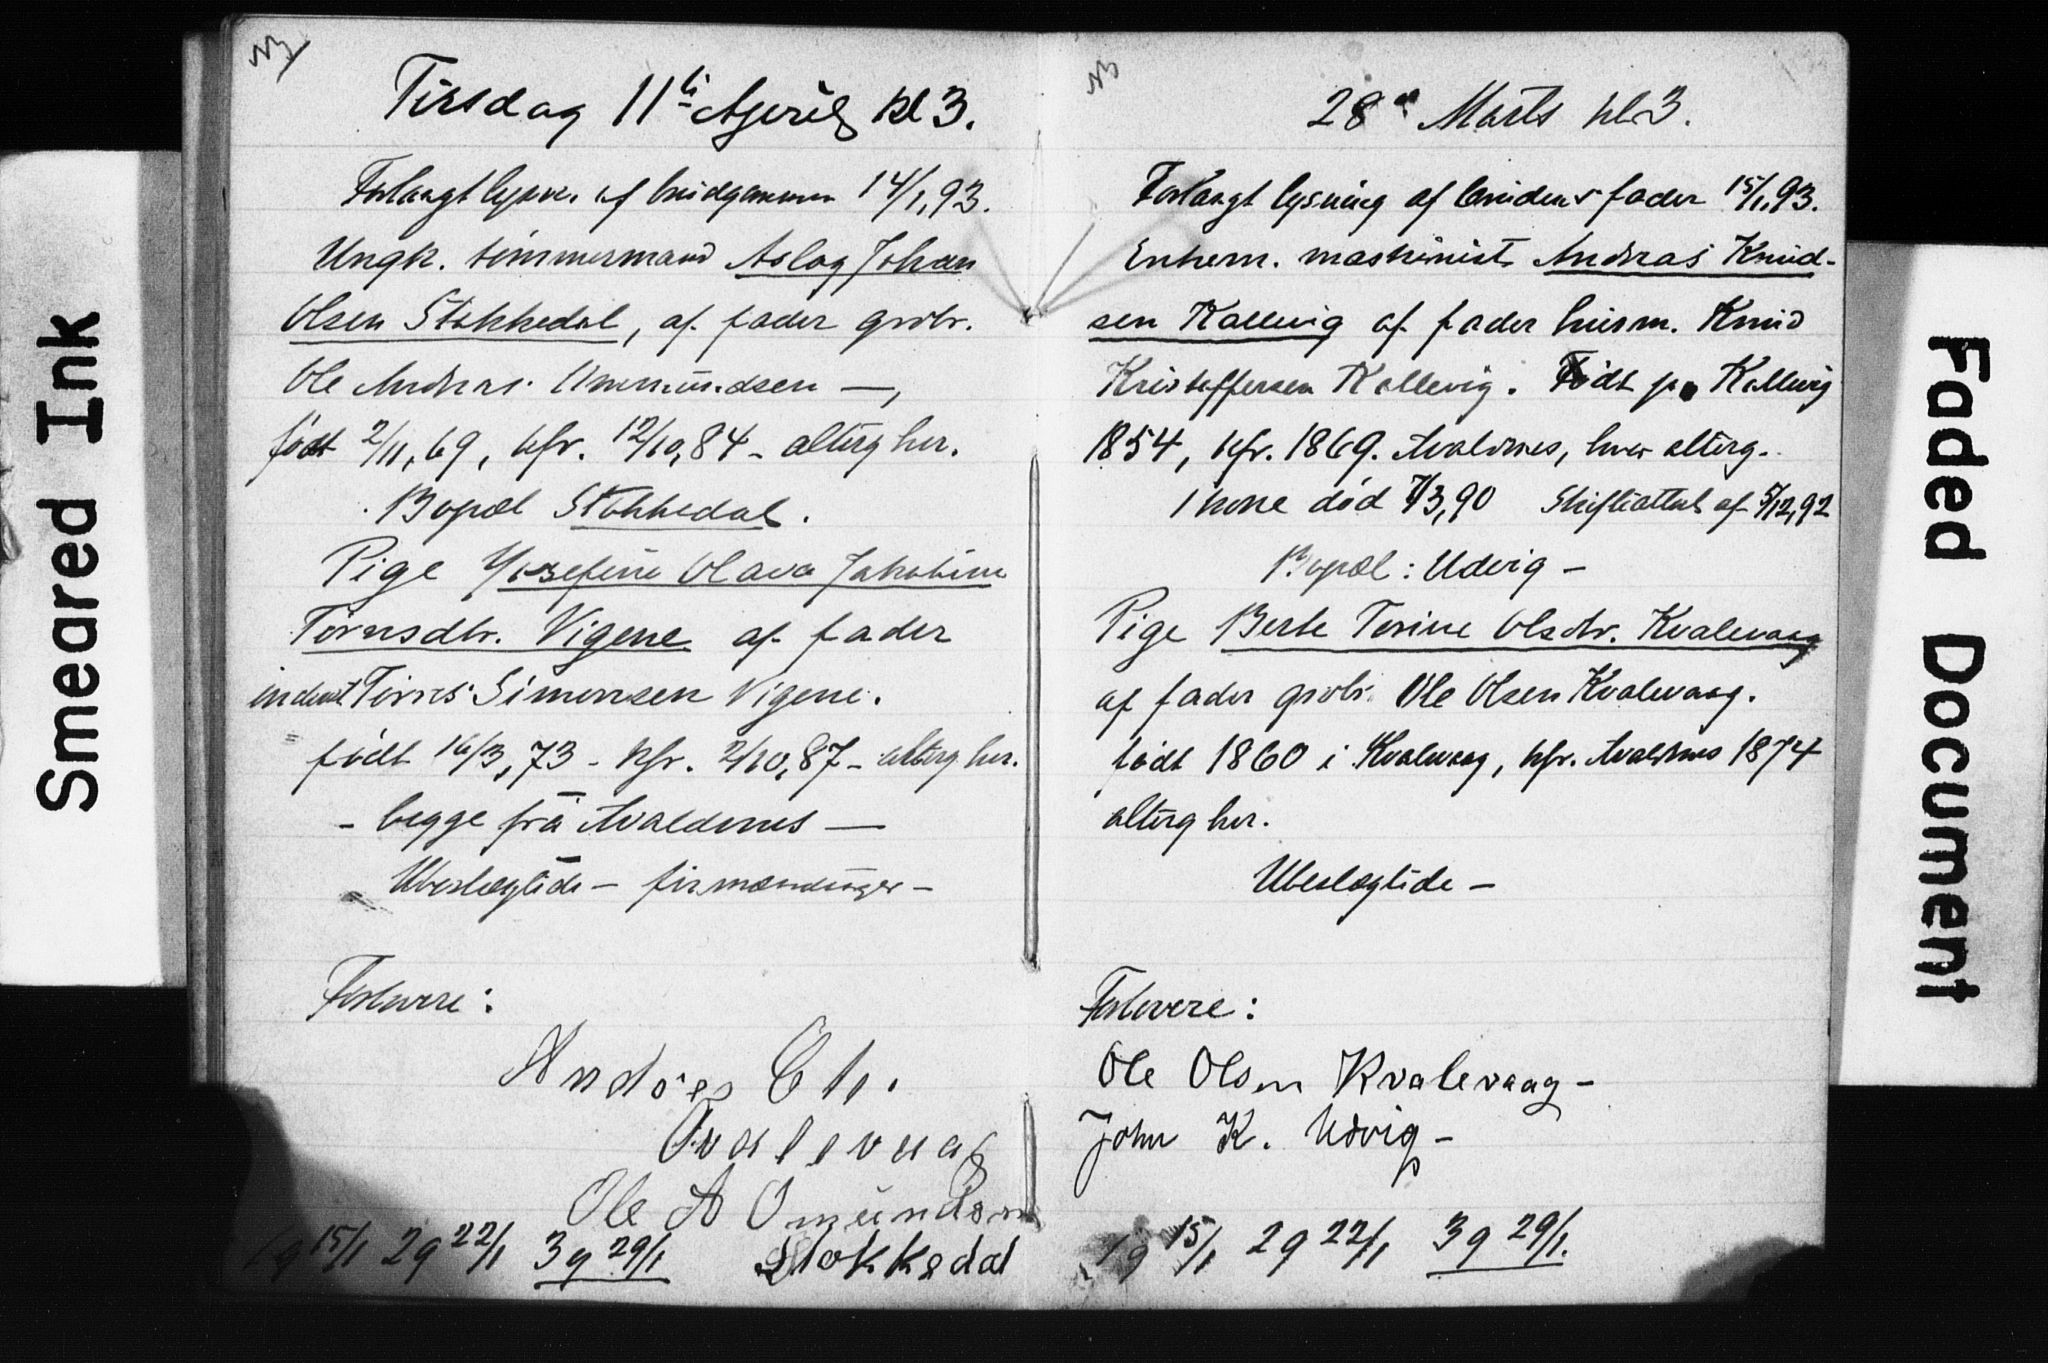 Smeared Ink
NB
Tirsdag 11te April kl 3.
Forlangt lysn. af brudgommen 14/1,93.
Ungk. tømmermand Aslag Johan
Olsen Stokkedal, af fader grdbr.
Ole Andreas Ommundsen —,
født 2/11,69, kfr. 12/10,84 - alterg her.
Bopæl Stokkedal.
Pige Josefine Olava Jakobine
Tørresdtr. Vigene af fader
inderst Tørres Simonsen Vigene.
født 16/3,73 - kfr. 2/10,87 - alterg her.
- begge frå Avaldsnes —
Ubeslægtede - firmændinger -
Forlovere:
Andreas Chr.
Kvalevaag
Ole A Omundsen
Stokkedal
1g 15/1 2g 22/1 3g 29/1
NB
28de Marts kl 3.
Forlangt lysning af brudens fader 15/1,93.
Enkem. maskinist Andreas Knud-
sen Kallevig af fader husm. Knud
Kristoffersen Kallevig. Født på Kallevig
1854, kfr. 1869. Avaldsnes, hver alterg.
1 kone død 7/3,90 Skifteattest af 5/12,92
Bopæl: Udvig -
Pige Berte Torine Olsdtr. Kvalevaag
af fader grdbr. Ole Olsen Kvalevaag.
født 1860 i Kvalevaag, kfr. Avaldsnes 1874
alterg her.
Ubeslægtede -
Forlovere:
Ole Olsen Kvalevaag -
John K. Udvig -
1g 15/1 2g 22/1 3g 29/1.
Faded Document